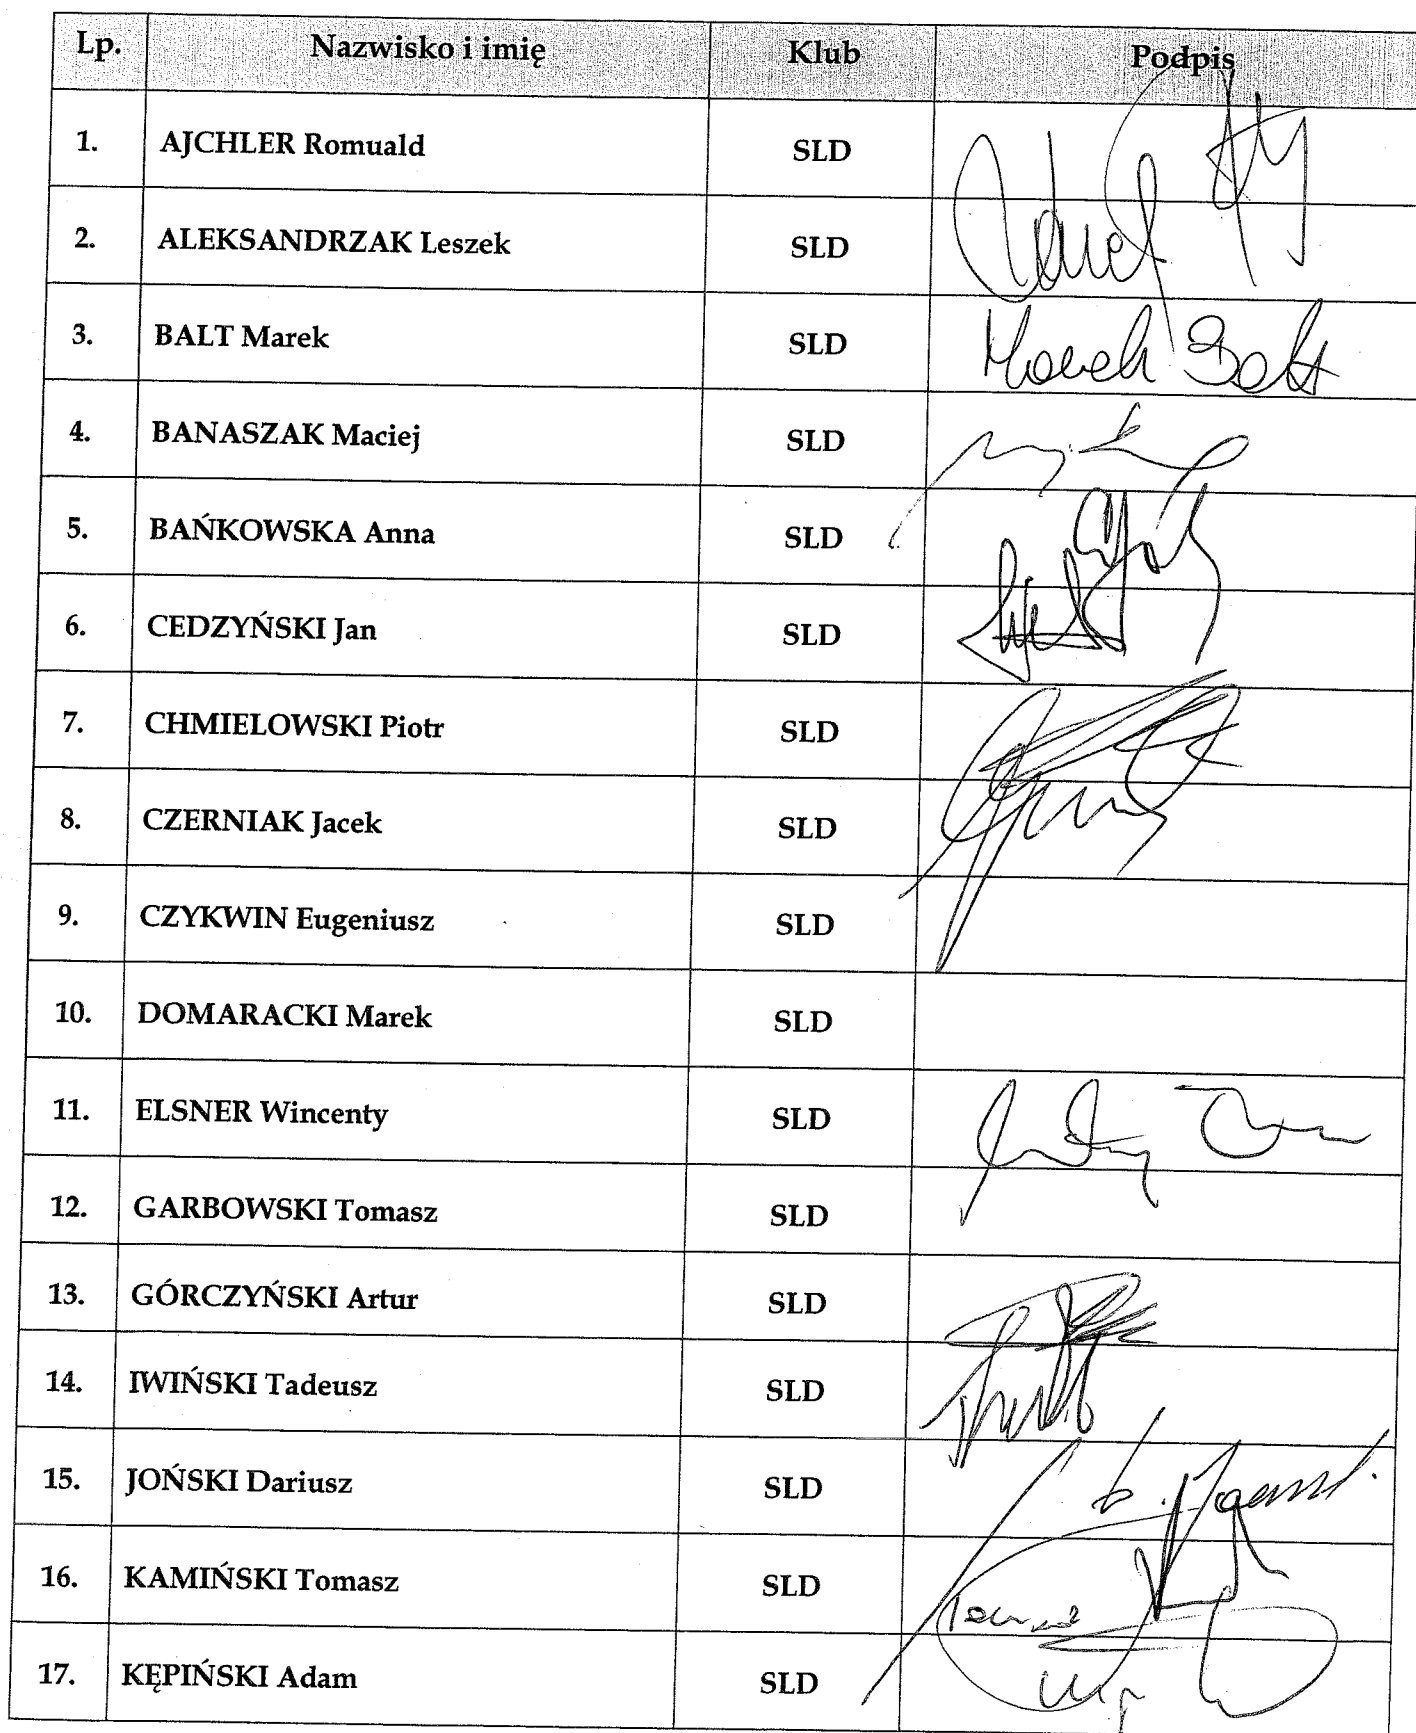 Lp. Nazwisko i imię Klub Podpis
1. AJCHLER Romuald SLD
2. ALEKSANDRZAK Leszek SLD
3. BALT Marek SLD Marek Balt
4. BANASZAK Maciej SLD
5. BAŃKOWSKA Anna SLD
6. CEDZYŃSKI Jan SLD
7. CHMIELOWSKI Piotr SLD
8. CZERNIAK Jacek SLD
9. CZYKWIN Eugeniusz SLD
10. DOMARACKI Marek SLD
11. ELSNER Wincenty SLD
12. GARBOWSKI Tomasz SLD
13. GÓRCZYŃSKI Artur SLD
14. IWIŃSKI Tadeusz SLD
15. JOŃSKI Dariusz SLD
16. KAMIŃSKI Tomasz SLD
17. KĘPIŃSKI Adam SLD